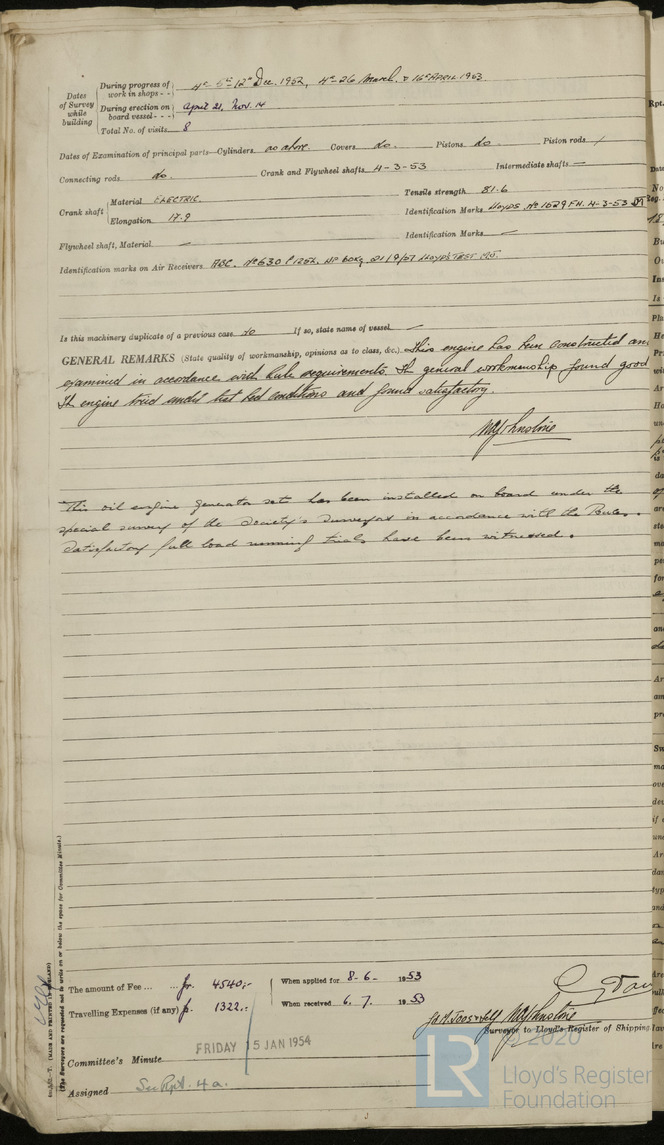 Dates of Survey while building
During progress of work in shops - - 4th 5th 12th Dec. 1952, 4th 26 March, & 16th APRIL 1953
During erection on board vessel - - - April 21, Nov. 14
Total No. of visits 8
Dates of Examination of principal parts—Cylinders as above. Covers do. Pistons do. Piston rods /
Connecting rods do. Crank and Flywheel shafts 4-3-53 Intermediate shafts —
Crank shaft Material ELECTRIC. Tensile strength 81.6
Elongation 17.9 Identification Marks LLOYDS No 1529 FH. 4-3-53
Flywheel shaft, Material — Identification Marks —
Identification marks on Air Receivers No 630 WP 60Kg. 21/9/51 LLOYDS TEST
Is this machinery duplicate of a previous case No If so, state name of vessel —
GENERAL REMARKS (State quality of workmanship, opinions as to class, &c.) This engine has been constructed and
examined in accordance with Rule requirements. The general workmanship found good
The engine tried under test bed conditions and found satisfactory.
This oil engine generator sets has been installed on board under the
special survey of the Society's Surveyors in accordance with the Rules.
Satisfactory full load running trials have been witnessed.
(MADE AND PRINTED IN ENGLAND)
(The Surveyors are requested not to write on or below the space for Committee Minute.)
The amount of Fee ... ... fr. 4540:- When applied for 8-6- 1953
Travelling Expenses (if any) fr. 1322.- When received 6. 7. 1953
Surveyor to Lloyd's Register of Shipping
Committee's Minute FRIDAY 15 JAN 1954
Assigned See Rpt. 4a.
© 2020
LR Lloyd's Register
Foundation